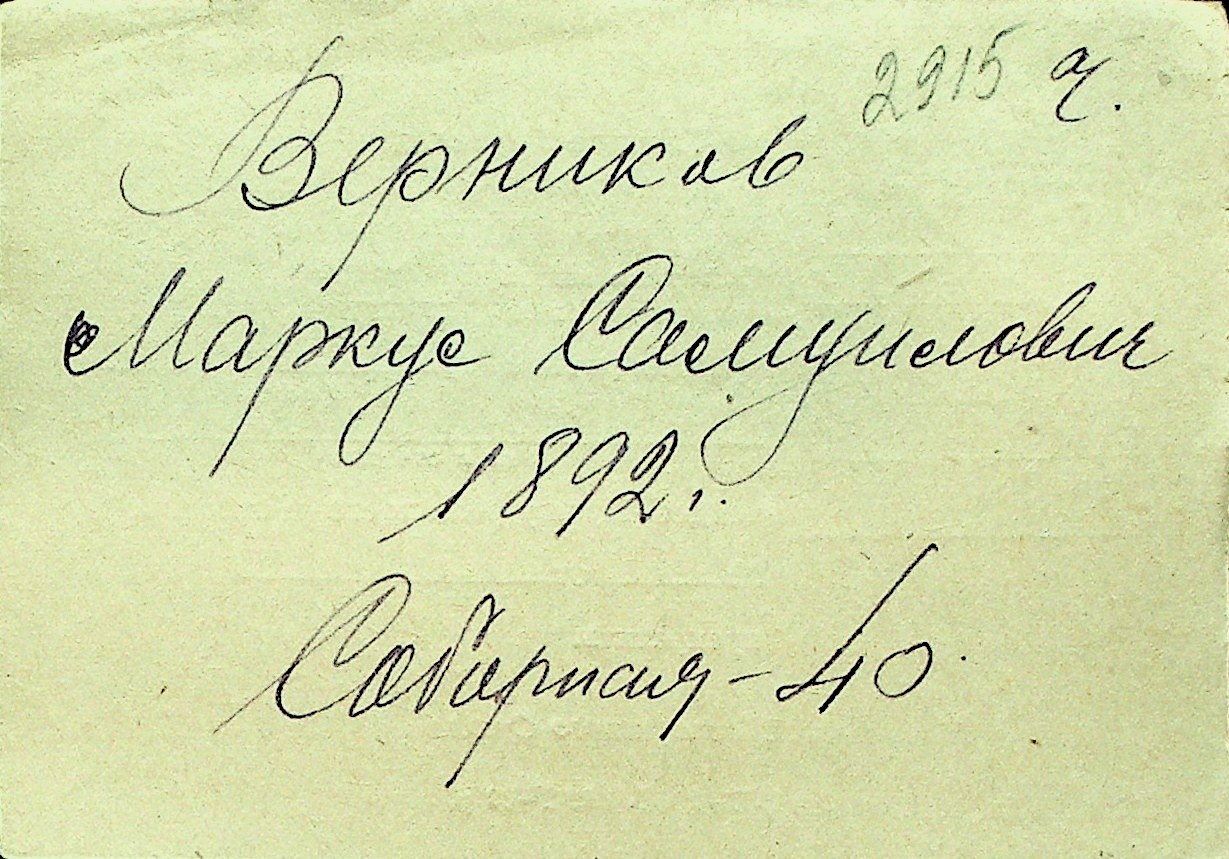 2915 ч.
Верников
Маркус Самуилович
1892г.
Соборная - 40